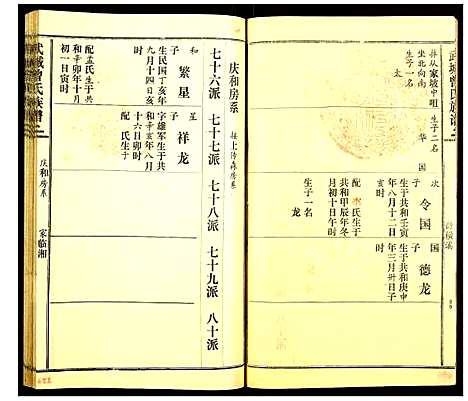 武城曾氏族谱
葬从家坡中咀
坐北向南
生子一名
太
生子二名
华
国
次
子
令国
生于共和壬寅
年八月十二日
亥时
配李氏生于
共和甲辰年冬
月初十日午时
生子一名
龙
国
子
德龙
生于共和庚申
年三月卅日子
时
庆和房系
接上传森房系
七十六派 七十七派 七十八派 七十九派 八十派
和
子
繁星
生民国丁亥年
九月十四日亥
时
配孟氏生于共
和辛卯年十月
初一日寅时
星
子
祥龙
字雄军生于共
和辛亥年八月
十六日卯时
配 氏生于
武城曾氏族谱
庆和房系
家临湘